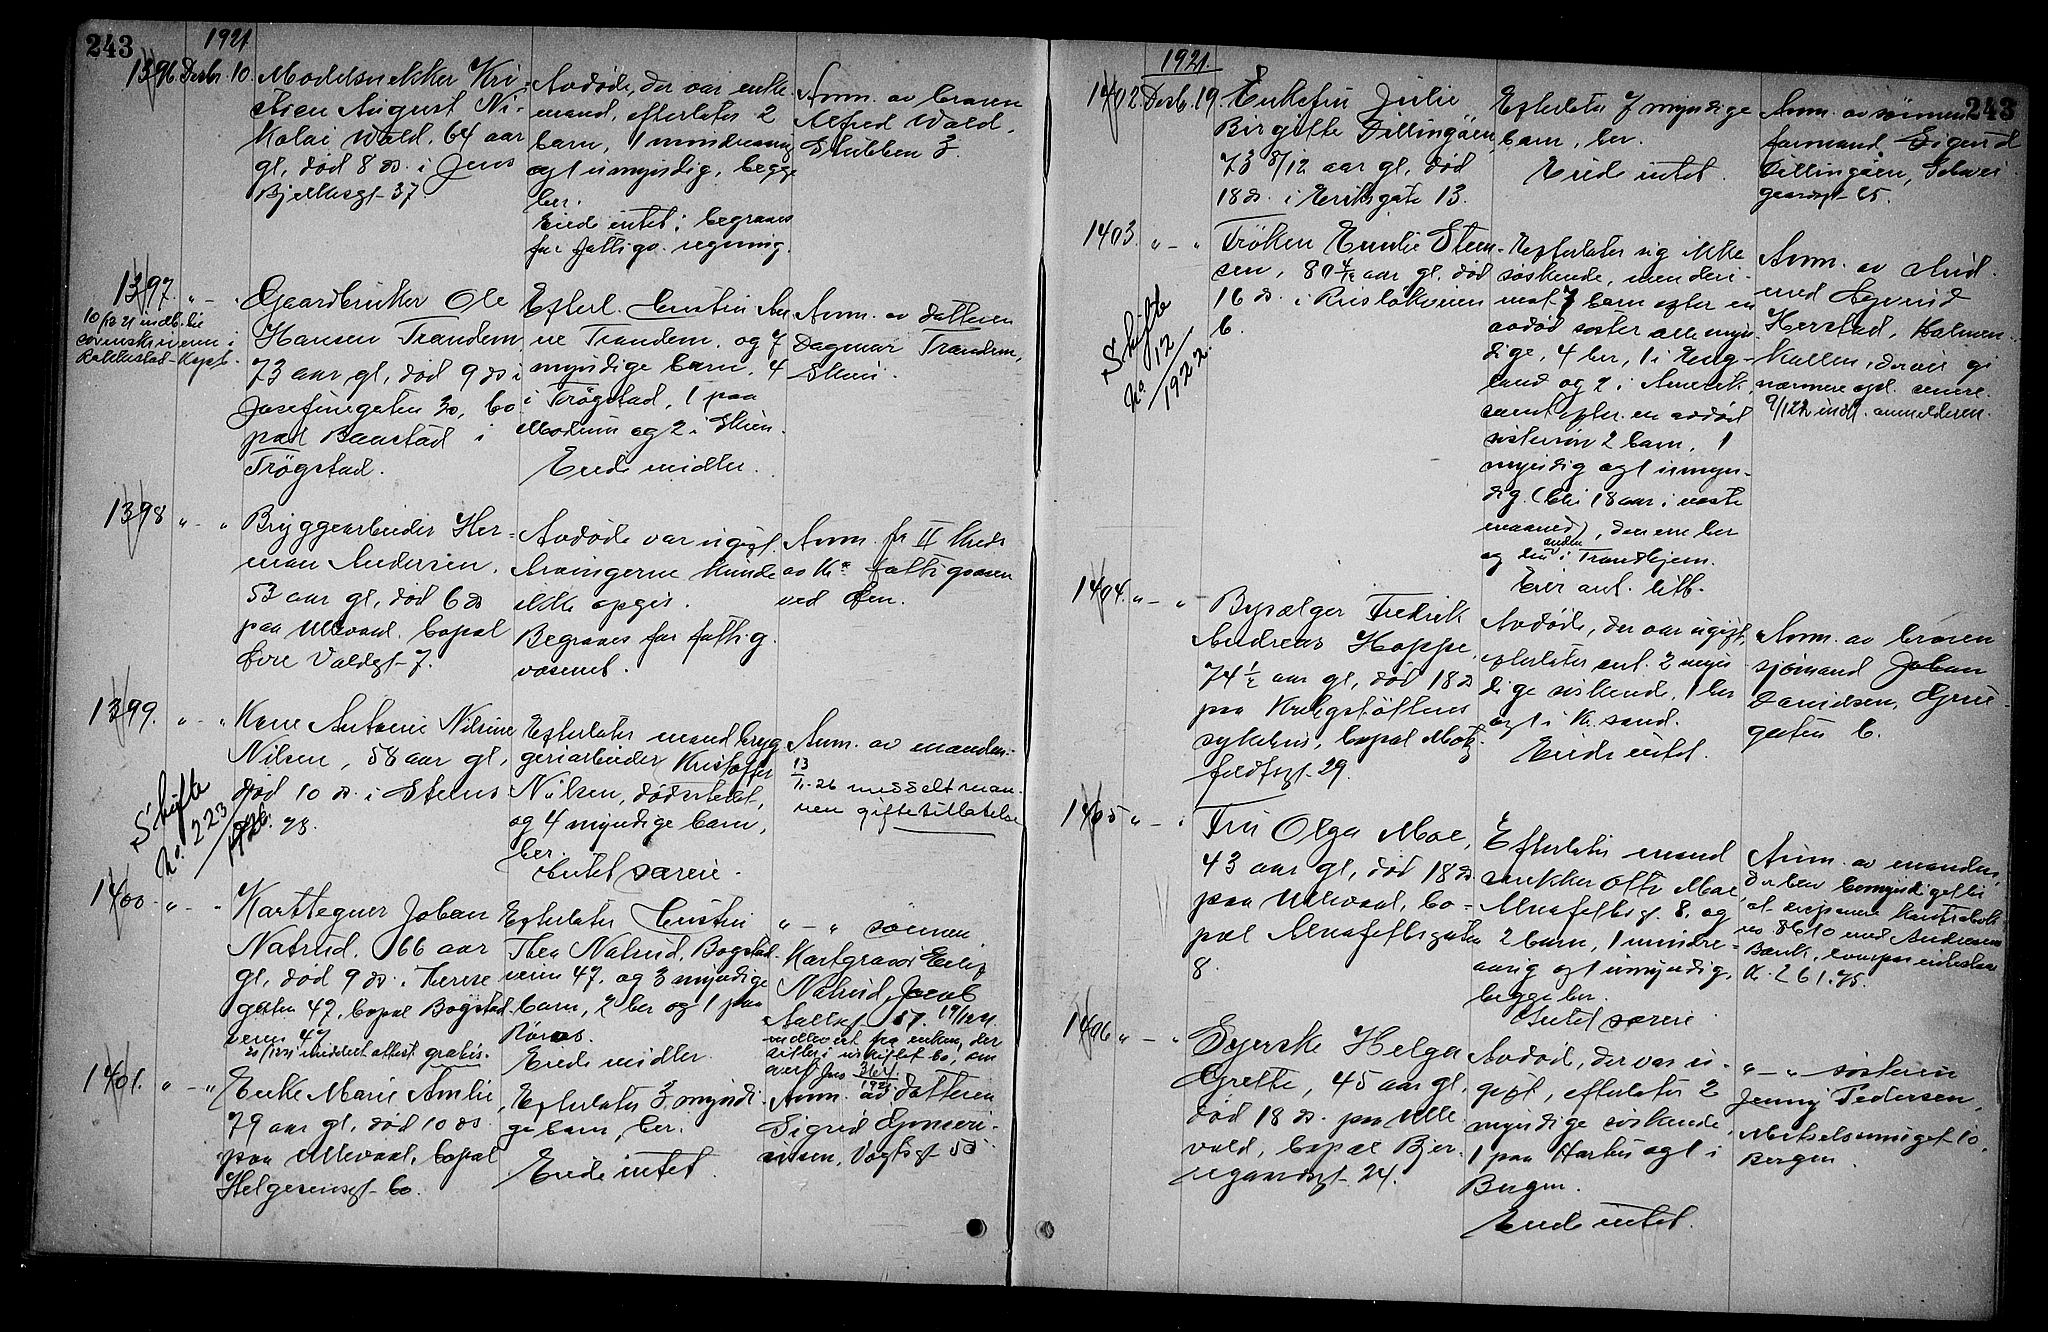 243
1921
1396 Desbr. 10.
Modelsnekker Kri-
stian August Ni-
kolai Wold, 64 aar
gl, død 8 ds. i Jens
Bjelkesgt- 37.
Avdøde, der var enke-
mand, efterlater 2
barn, 1 mindreaarig
og 1 umyndig, begge
her.
Eiede intet; begraves
for fattigv. regning.
Anm. av broren
Alfred Wold,
Stubben 3.
1397. " - "
Gaardbruker Ole
Hansen Trandem,
73 aar gl, død 9 ds i
Josefinegaten 30, bo
pæl Baastad i
Trøgstad.
Efterl.
Trandem, og 7
myndige barn, 4
i Trøgstad, 1 paa
Modum og 2 i Skien.
Eiede midler.
Anm. av datteren
Dagmar Trandem,
Skien.
1398 " - "
Bryggearbeider Her-
man Andersen,
53 aar gl, død 6 ds
paa Ullevaal, bopæl
Øvre Voldgt- 7.
Avdøde var ugift.
Arvingerne kunde
ikke opgis.
Begraves for fattig-
væsenet.
Anm. fra II Kreds
av Kr.a fattigvæsen
ved
1399. " - "
Kone Antonie Nilsine
Nilsen, 58 aar gl,
død 10 ds. i Stens
gt. 93.
Efterlater mand bryg
geriarbeider Kristoffer
Nilsen, dødsstedet,
og 4 myndige barn,
her.
Intet særeie.
Anm. av manden.
13/11-26 meddelt man-
nen giftetillatelse
Skifte
No. 223/1926.
1400 " - "
Karttegner Johan
Natrud, 66 aar
gl, død 9 ds. i Therese
gaten 47, bopæl Bogstad
veien 47
Efterlater hustru
Thea Natrud, Bogstad-
veien 47, og 3 myndige
barn, 2 her og 1 paa
Røros.
Eiede midler.
" - " sønnen
Kartgravør Eilif
Natrud, Jacob
Aallsgt 57.
1401. " - "
Enke Marie Amlie,
79 aar gl, død 10 ds.
paa Ullevaal, bopæl
Helgesensgt- 60.
Efterlater 3 myndi-
ge barn, her.
Eiede intet.
Anm. av datteren
Sigrid
Vogtsgt 55
243
1921.
1402 Desb. 19.
Enkefru Julie
Birgitte Dillingøen,
73 8/12 aar gl, død
18 ds. i Eeriksgate 13.
Efterlater 7 myndige
barn, her.
Eiede intet.
Anm. av sønnen
formand Sigurd
Dillingøen, Schwei-
gaardsgt- 65.
1403. " - "
Frøken Emilie Steen-
sen, 80 4/12 aar gl. død
16 ds. i Risløkveien
6.
Efterlater sig ikke
søskende, men deri-
mot 7 barn efter en
avdød søster alle myn
dige, 4 her, 1 i Eng-
land og 2 i Amerika,
samt efter en avdød
søstersøn 2 barn, 1
myndig og 1 umyn-
dig (blir 18 aar i næste
maaned), den ene her
og den anden i Trondhjem.
Eier ant. litt.
Anm. av
Øyvind
Herstad, Holmen-
kollen, der vil gi
nærmere opl. senere.
Skifte
No. 12/1922.
1404. " - "
Bysælger Fredrik
Andreas Hoppe,
74 1/2 aar gl, død 18 ds
paa Krohgstøttens
sykehus, bopæl Motz-
feldtsgt- 29.
Avdøde, der var ugift,
efterlater ant. 2 myn
dige søskende, 1 her
og 1 i Kr.sand.
Eiede intet.
Anm. av broren
sjømand Johan
Davidsen, Grue-
gaten 6.
1405 " - "
Fru Olga Moe,
43 aar gl, død 18 ds.
paa Ullevaal, bo-
pæl Alnafetgaten
8.
Efterlater mand
snekker Otto Moe,
Alnafetgt. 8, og
2 barn, 1 mindre-
aarig og 1 umyndig,
begge her.
Intet særeie
Anm. av manden,
der blev bemyndiget til
at disponere kontrabok
no 8610 med Andresens
Bank,
Kr. 261.75.
1406 " - "
Syerske Helga
Grette, 45 aar gl,
død 18 ds. paa Ulle
vaal, bopæl Bjer-
regaardsgt- 24.
Avdøde, der var u-
gift, efterlater 2
myndige søskende,
1 paa Harbu og 1 i
Bergen.
Eiede intet.
" - " søsteren
Jenny Pedersen,
10,
Bergen.